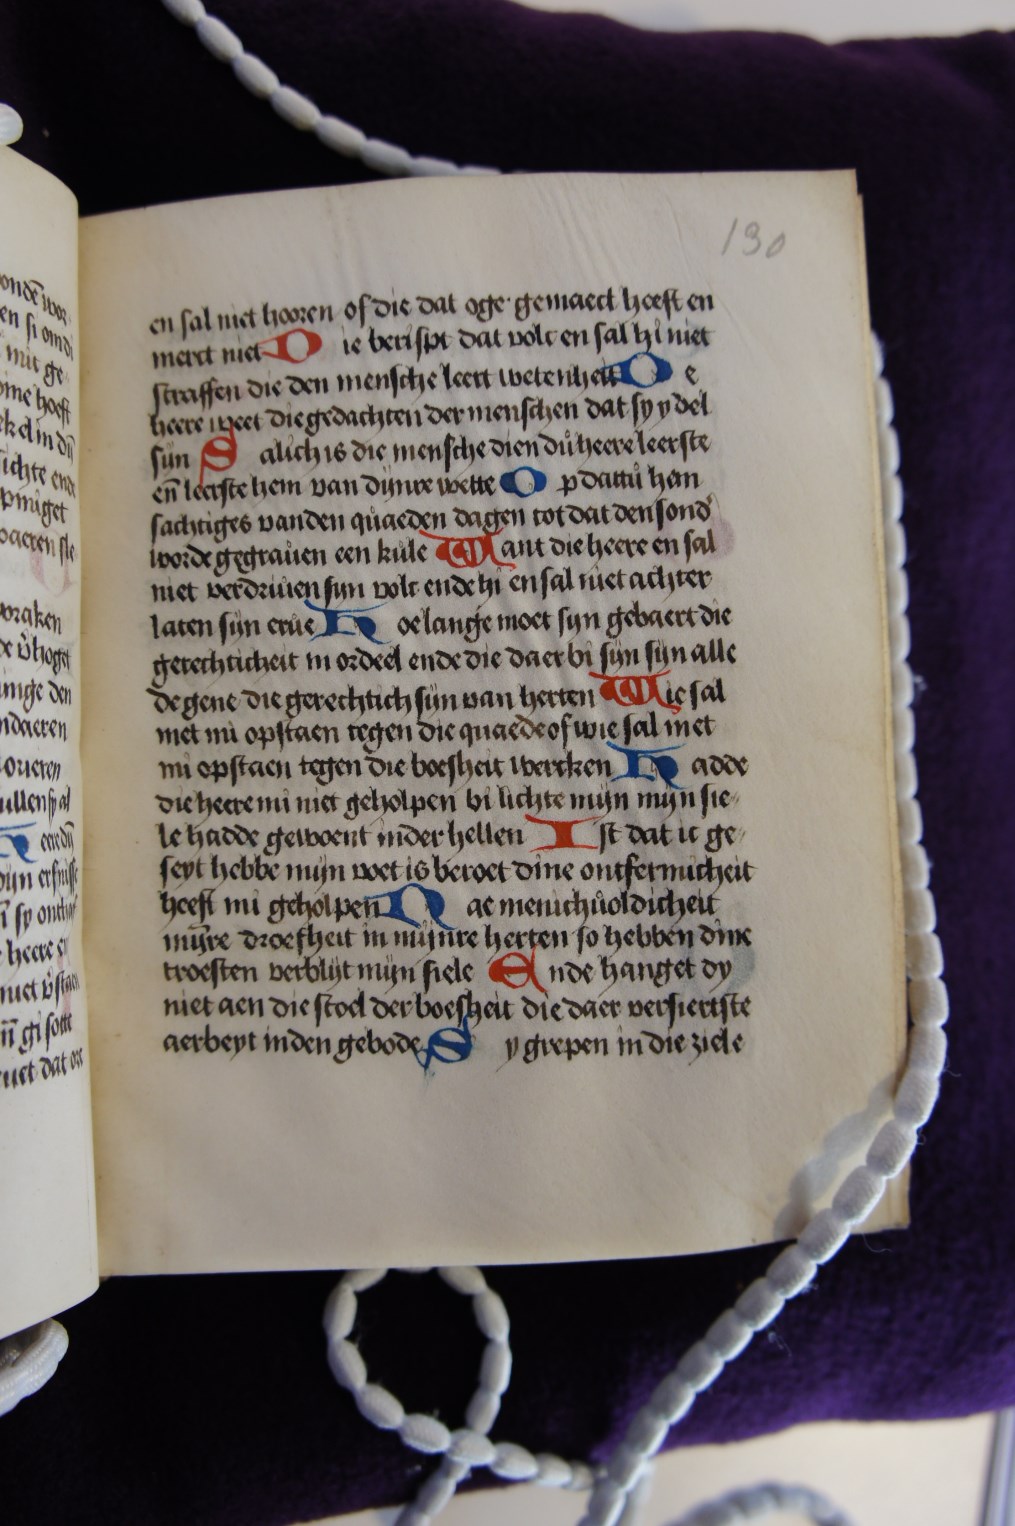 130
en sal niet hooren of die dat oge gemaect heeft en
merct niet Die berispt dat volc en sal hi niet
straffen die den mensche leert wetenheit De
heere weet die gedachten der menschen dat sy ydel
sijn Salich is die mensche dien dů heere leerste
en̄ leerste hem van dijnre wette Op dattů hem
sachtiges vanden quaeden dagen tot dat den sond'
worde gegraůen een kule Want die heere en sal
niet verdriůen sijn volc ende hi en sal niet achter
laten sijn erůe Hoe lange moet sijn gebaert die
gerechticheit in ordeel ende die daer bi sijn sijn alle
de gene die gerechtich sijn van herten Wie sal
met mi opstaen tegen die quaede of wie sal met
mi opstaen tegen die boesheit wercken Hadde
die heere mi niet geholpen bi lichte mijn mijn sie-
le hadde gewoent inder hellen Ist dat ic ge-
seyt hebbe mijn voet is beroet dine ontfermicheit
heeft mi geholpen Nae menichůoldicheit
mijre droefheit in mijnre herten so hebben dine
troesten verblijt mijn siele Ende hanget dy
niet aen die stoel der boesheit die daer versierste
aerbeyt inden gebode Sy grepen in die ziele